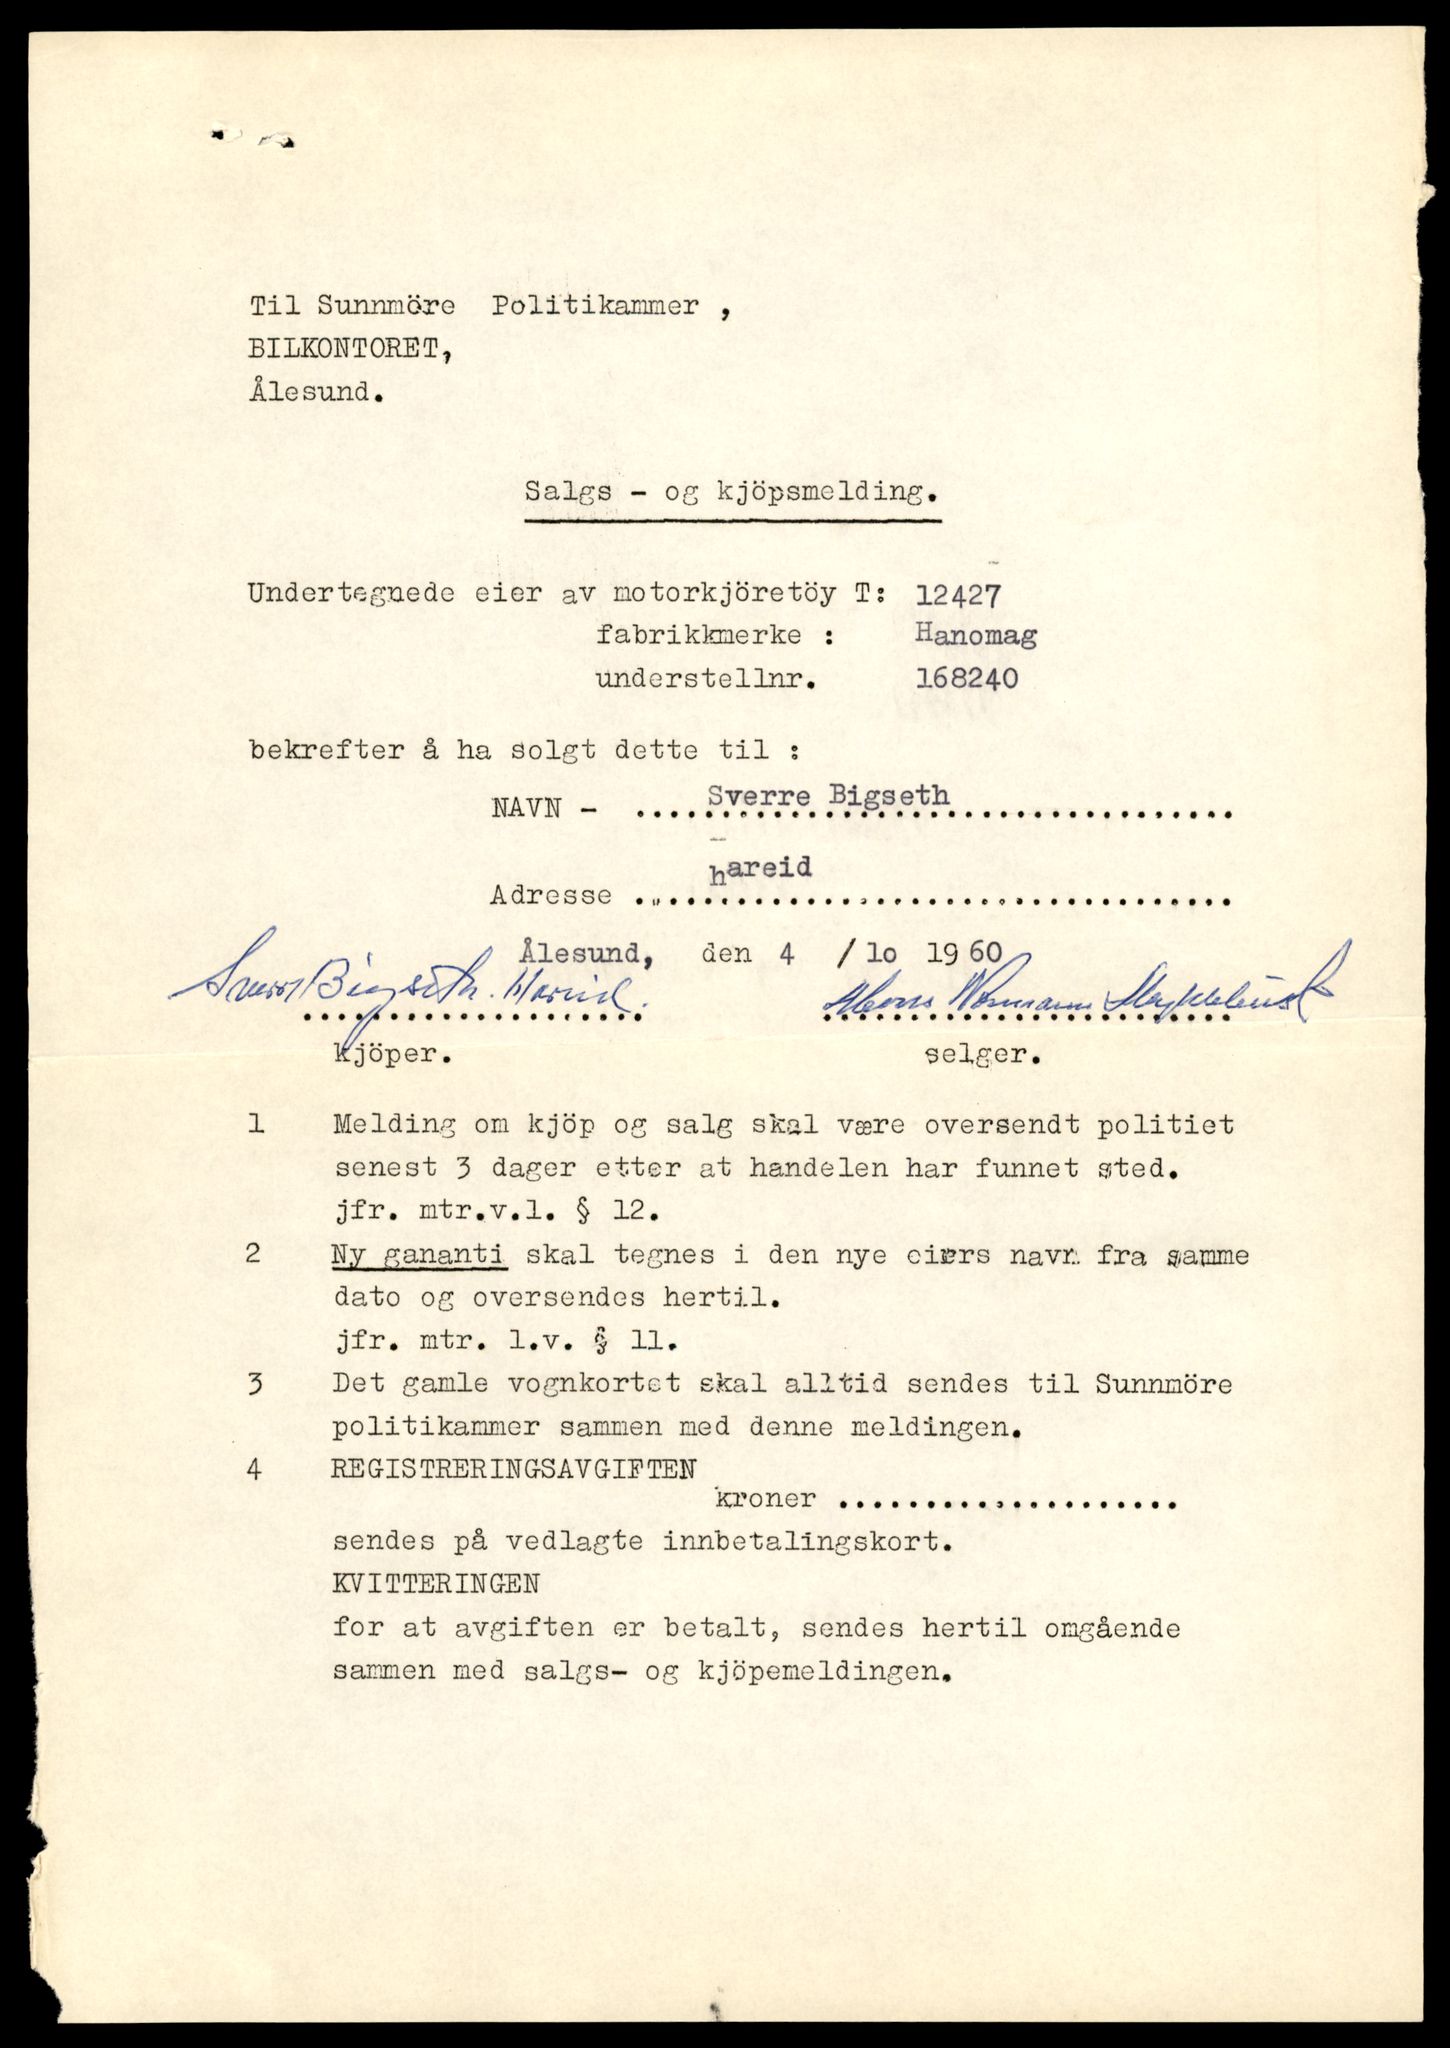 Til Sunnmöre Politikammer ,
BILKONTORET,
Ålesund.
Salgs - og kjöpsmelding.
Undertegnede eier av motorkjöretöy T: 12427
fabrikkmerke : Hanomag
understellnr. 168240
bekrefter å ha solgt dette til :
NAVN - Sverre Bigseth
Adresse hareid
Ålesund, den 4 / lo 1960
Sverre Bigseth. Hareid.
kjöper. selger.
1 Melding om kjöp og salg skal være oversendt politiet
senest 3 dager etter at handelen har funnet sted.
jfr. mtr.v.l. § 12.
2 Ny gananti skal tegnes i den nye eiers navn fra samme
dato og oversendes hertil.
jfr. mtr. l.v. § 11.
3 Det gamle vognkortet skal alltid sendes til Sunnmöre
politikammer sammen med denne meldingen.
4 REGISTRERINGSAVGIFTEN
kroner ....................
sendes på vedlagte innbetalingskort.
KVITTERINGEN
for at avgiften er betalt, sendes hertil omgående
sammen med salgs- og kjöpemeldingen.